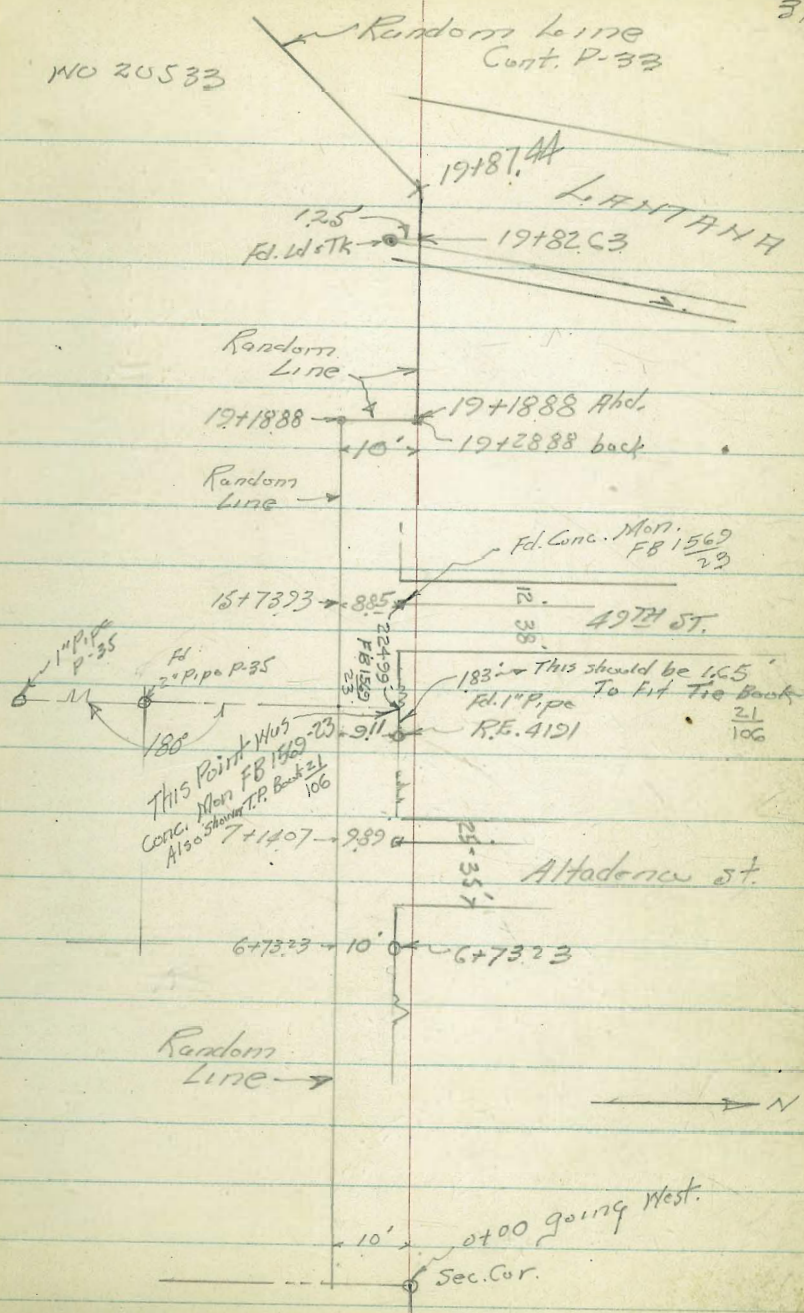 Random Line
Cont. P-33
WO 20533
19+87.44
LANTANA
1.25
Fd. Ld & Tk
19+82.63
Random
Line
19+18.88
19+18.88 Ahd.
19+28.88 back
10'
Random
Line
Fd. Conc. Mon.
FB 1569
23
15+73.93
8.85
12'
38'
49TH ST.
224.99
FB 1569
23
1" Pipe
P-35
Fd
2" Pipe P-35
180°
1.83'
This should be 1.65'
To Fit Tie Book
21
106
Fd. 1" Pipe
R.E. 4191
9.11
This Point Was
Conc. Mon FB 1569-23
Also shown T.P. Book 21
106
7+14.07
9.89
25'
35'
Altadena St.
6+73.23
10'
6+73.23
Random
Line
N
10'
0+00 going West.
Sec. Cor.